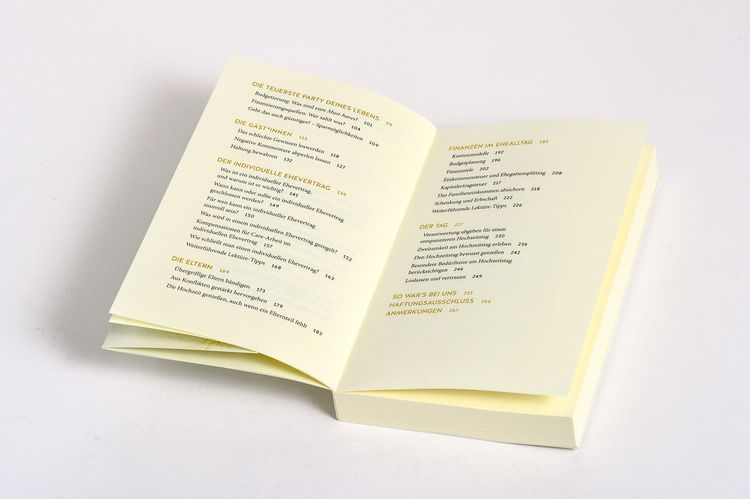 DIE TEUERSTE PARTY DEINES LEBENS 99
Budgetierung: Was sind eure Must-haves? 101
Finanzierungsquellen: Wer zahlt was? 104
Geht das auch günstiger? – Sparmöglichkeiten 109
DIE GÄST*INNEN 115
Das schlechte Gewissen loswerden 118
Negative Kommentare abperlen lassen 127
Haltung bewahren 132
DER INDIVIDUELLE EHEVERTRAG 138
Was ist ein individueller Ehevertrag,
und warum ist er wichtig? 141
Wann kann oder sollte ein individueller Ehevertrag
geschlossen werden? 149
Für wen kann ein individueller Ehevertrag
sinnvoll sein? 150
Was wird in einem individuellen Ehevertrag geregelt? 152
Kompensationen für Care-Arbeit im
individuellen Ehevertrag 157
Wie schließt man einen individuellen Ehevertrag? 163
Weiterführende Lektüre-Tipps 168
DIE ELTERN 169
Übergriffige Eltern bändigen 173
Aus Konflikten gestärkt hervorgehen 179
Die Hochzeit genießen, auch wenn ein Elternteil fehlt 183
FINANZEN IM EHEALLTAG 189
Kontenmodelle 192
Budgetplanung 196
Finanzziele 202
Einkommensteuer und Ehegattensplitting 208
Kapitalertragsteuer 217
Das Familieneinkommen absichern 218
Schenkung und Erbschaft 222
Weiterführende Lektüre-Tipps 226
DER TAG 227
Verantwortung abgeben für einen
entspannteren Hochzeitstag 230
Zweisamkeit am Hochzeitstag erleben 236
Den Hochzeitstag bewusst genießen 242
Besondere Bedürfnisse am Hochzeitstag
berücksichtigen 246
Loslassen und vertrauen 249
SO WAR'S BEI UNS 255
HAFTUNGSAUSSCHLUSS 266
ANMERKUNGEN 267